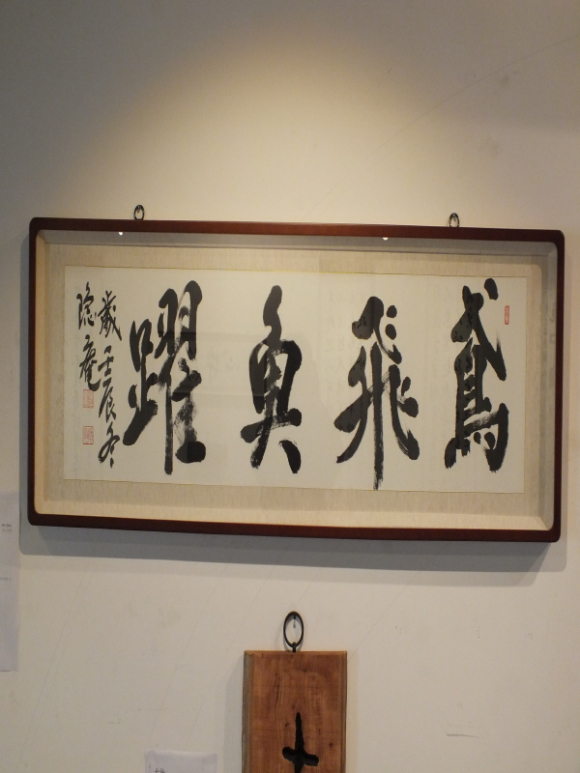 鳶飛魚躍
歲壬辰冬
隐庵